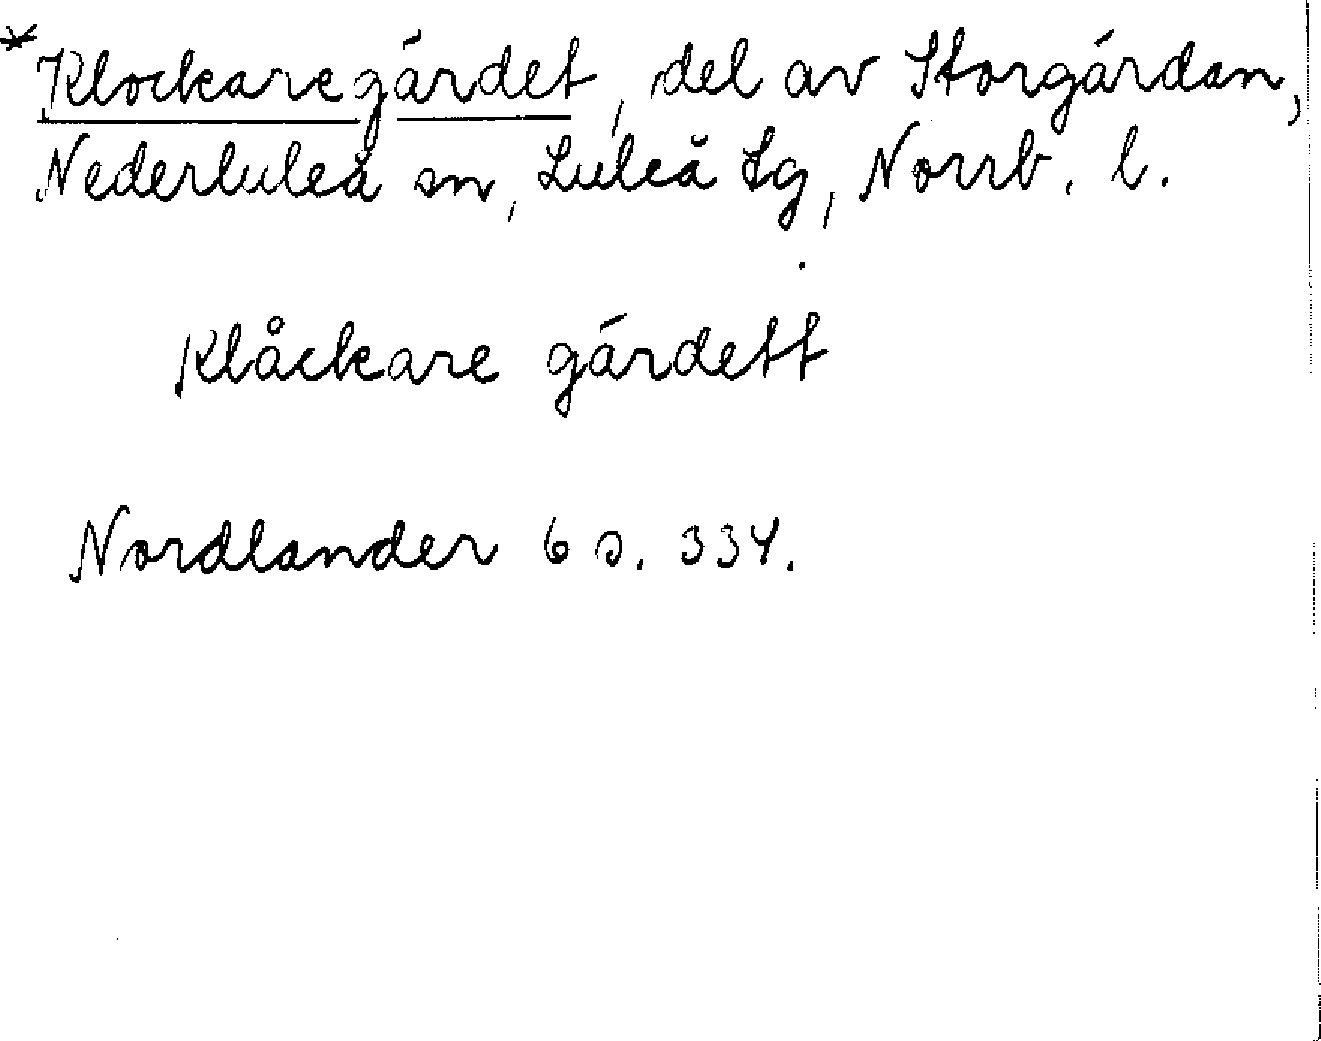 *Klockaregärdet, del av Storgärdan,
Nederluleå sn, Luleå tg, Norrb. l.
Klåckare gärdett
Nordlander 6 s. 334.